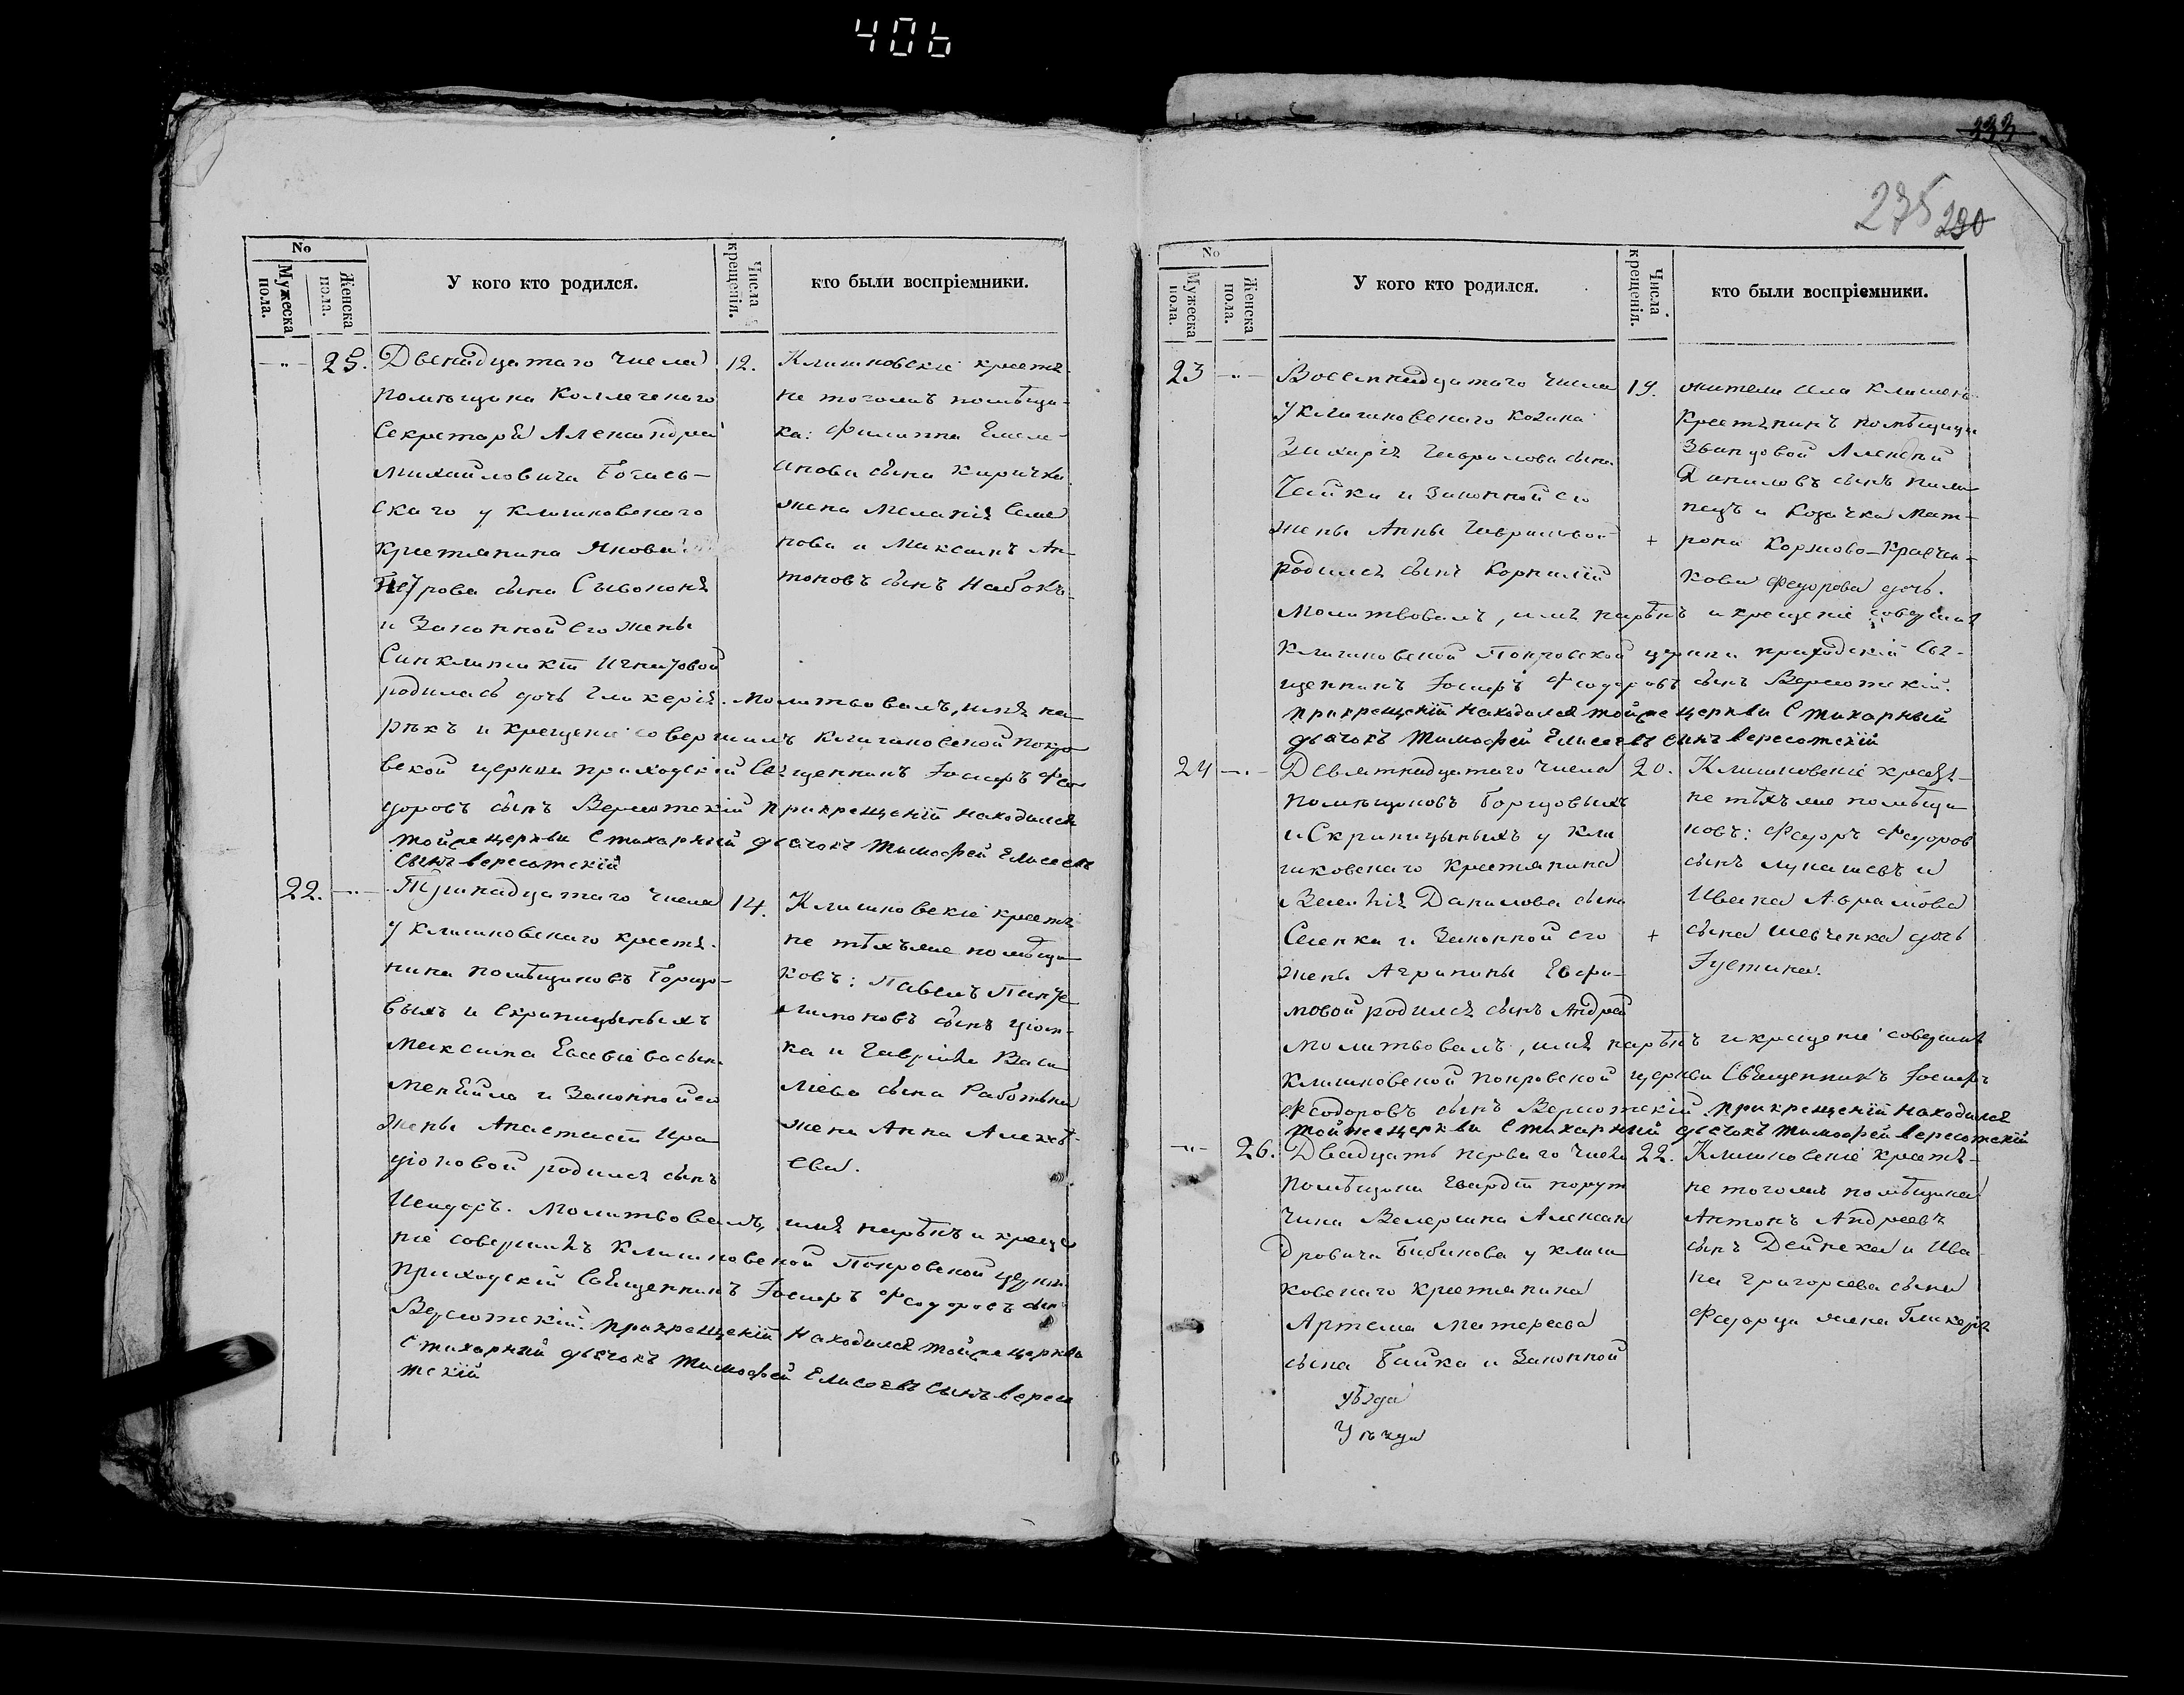 406
No
Мужеска пола.
Женска пола.
У кого кто родился.
Числа крещенія.
кто были воспріемники.
25.
Двенадцатаго числа
помѣщика Коллеческаго
Секретаря Александра
Михайловича
скаго у Клишковскаго
крестьянина Якова
Петрова сына
и Законной его жены
Синклитикіи Игнатовой
родилась дочь Гликерія. Молитвовалъ, имя на
рѣкъ и крещеніе совершилъ Клишковской Покро
вской церкви приходскій Священникъ Іосифъ Фео
доровъ сынъ Вересотскій прикрещеніи находился
тойже церкви Стихарный дьячокъ Тимофей Елисеевъ
сынъ вересотскій
12.
Клишковскіе крестя
не тогожъ помѣщи-
ка: Филиппа Емель-
янова сына
жена Меланія Семе
нова и Максимъ Ан-
тоновъ сынъ Набокъ.
22.
Тринадцатаго числа
у Клишковскаго крестя-
нина помѣщиковъ
выхъ и Скрипицыныхъ
Максима Евсевіева сына
и Законной его
жены Анастасіи Ира
діоновой родился сынъ
Исидоръ. Молитвовалъ, имя нарѣкъ и креще
ніе совершилъ Клишковской Покровской церкви
приходскій Священникъ Іосифъ Феодоровъ сынъ
Вересотскій. прикрещеніи находился тойже церкви
Стихарный дьячокъ Тимофей Елисеевъ сынъ вересо
тскій
14.
Клишковскіе крестя
не тѣхъже помѣщи
ковъ: Павелъ Панте
лимоновъ сынъ
ка и Гавріила Васи
лева сына
жена Анна Алексѣ-
ева.
233
275 290
No
Мужеска пола.
Женска пола.
У кого кто родился.
Числа крещенія.
кто были воспріемники.
23
Восемнадцатаго числа
у Клишковскаго козака
Захарія Гаврилова сына
Чайки и Законной его
жены Анны Гавриловой
родился сынъ Корнилій
Молитвовалъ, имя нарѣкъ и крещеніе совершилъ
Клишковской Покровской церкви приходскій Свя-
щенникъ Іосифъ Феодоровъ сынъ Вересотскій.
прикрещеніи находился тойже церкви Стихарный
дьячокъ Тимофей Елисеевъ сынъ вересотскій
19.
жители села
Крестянинъ помѣщицы
Званцовой Алексѣй
Даниловъ сынъ
и Козачка Мат-
+ рона
кова Федорова дочь.
24
Девятнадцатаго числа
помѣщиковъ
и Скрипицыныхъ у Кли
шковскаго крестянина
Василія Данилова сына
Сеенка и Законной его
жены Агрипины Евфи-
мовой родился сынъ Андрей
молитвовалъ, имя нарѣкъ и крещеніе совершилъ
Клишковской покровской церкви Священникъ Іосифъ
Феодоровъ сынъ Вересотскій прикрещеніи находился
тойже церкви Стихарный дьячокъ тимофей вересотскій
20.
Клишковскіе крестя-
не тѣхъже помѣщи
ковъ: Федоръ Федоров
сынъ Лукашевъ и
Ивана Аврамова
+ сына Шевченка дочь
Іустина.
26.
Двадцать перваго числа
помѣщика Гвардіи порут
чика Валеріана Алексан
дровича Бибикова у Клиш
ковскаго крестянина
Артема
сына Байка и Законной
22.
Клишковскіе крестя-
не тогожъ помѣщика
Антонъ Андреевъ
сынъ Дейнека и Ива
на Григорева сына
жена Гликерія
уѣзда